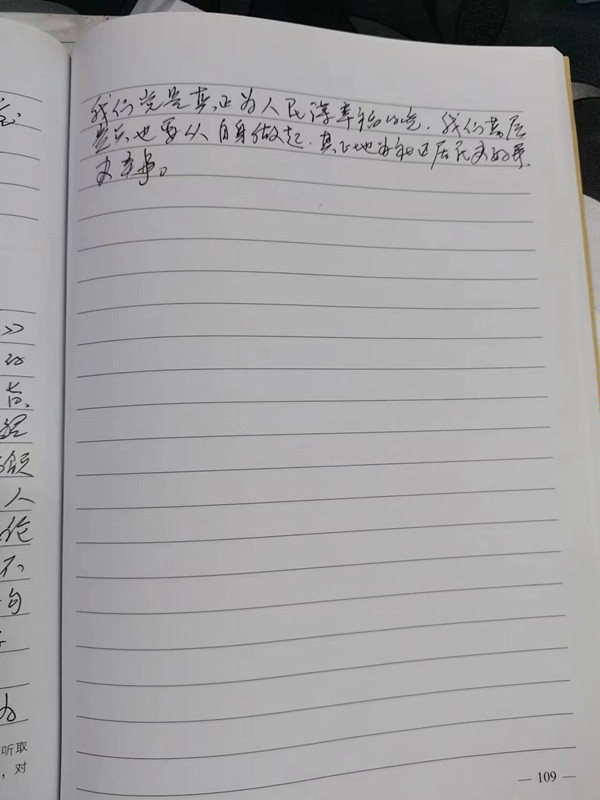 我们党是真正为人民谋幸福的党，我们基层
党员也要从自身做起，真正地为社区居民办好事
办实事。
》
人
不
句
为
听取
，对
— 109 —